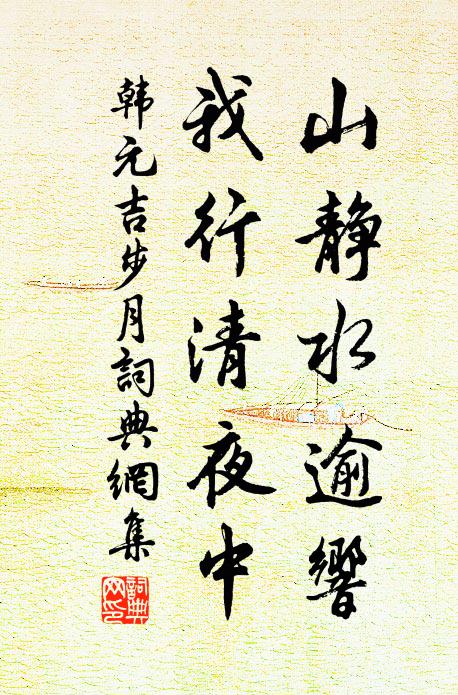 山静水逾響
我行清夜中
韩元吉步月詞典網集
詞典
网印